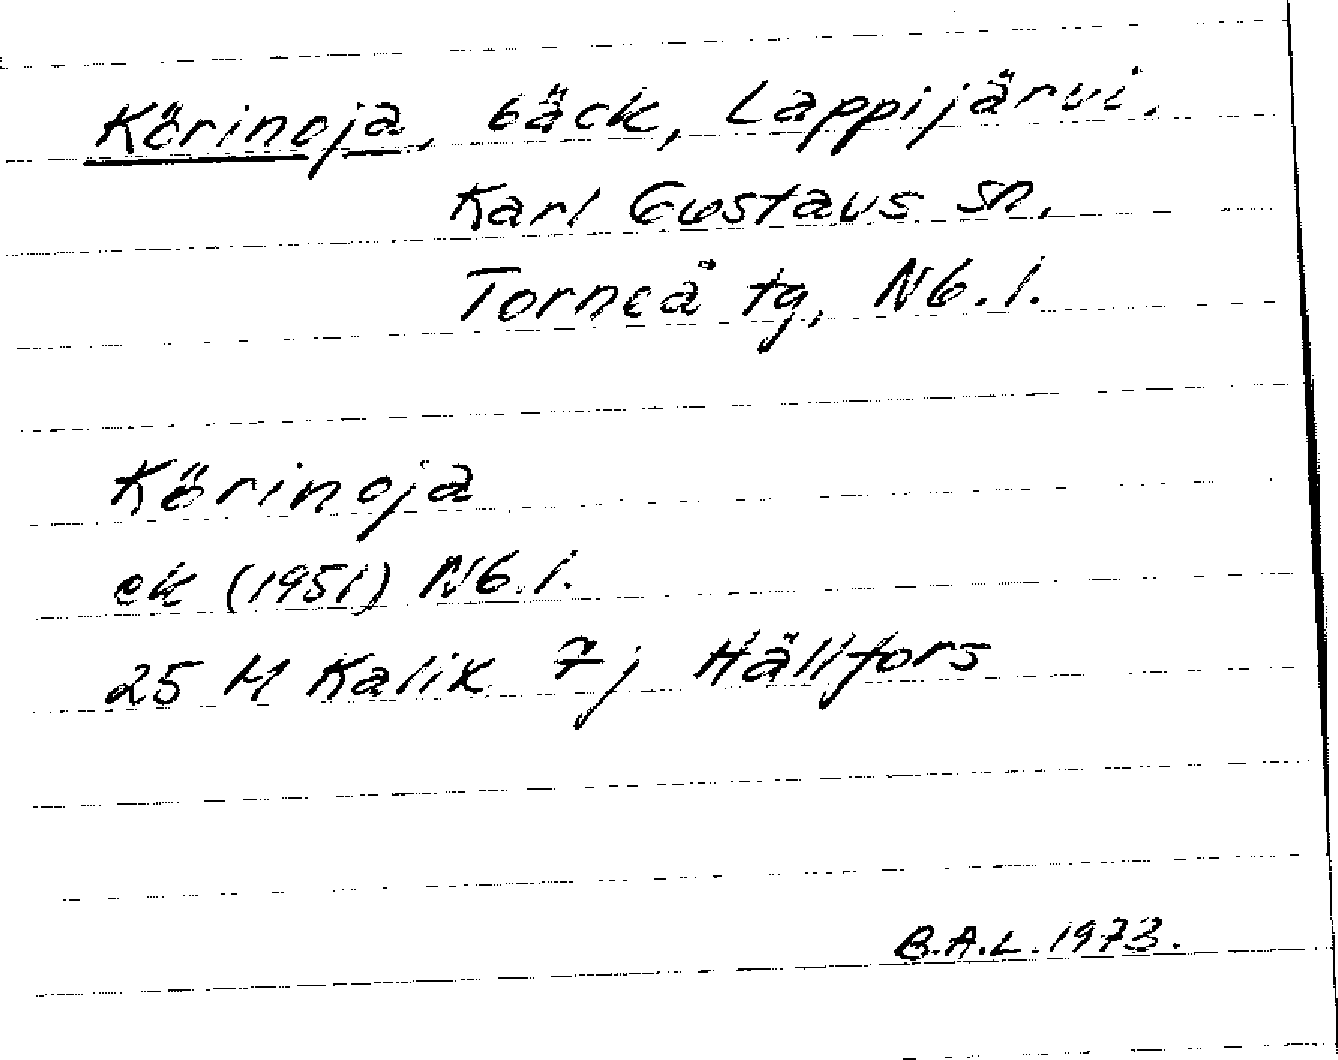 Körinoja, bäck, Lappijärvi.
Karl Gustavs sn.
Torneå tg, Nb. l.
Körinoja
ek (1951) Nb. l.
25 M Kalix 7j Hällfors
B.A.L. 1973.